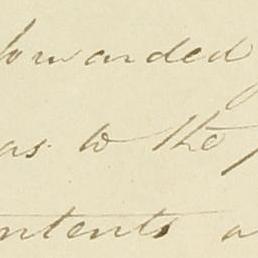 forwarded
as to the
ntents a